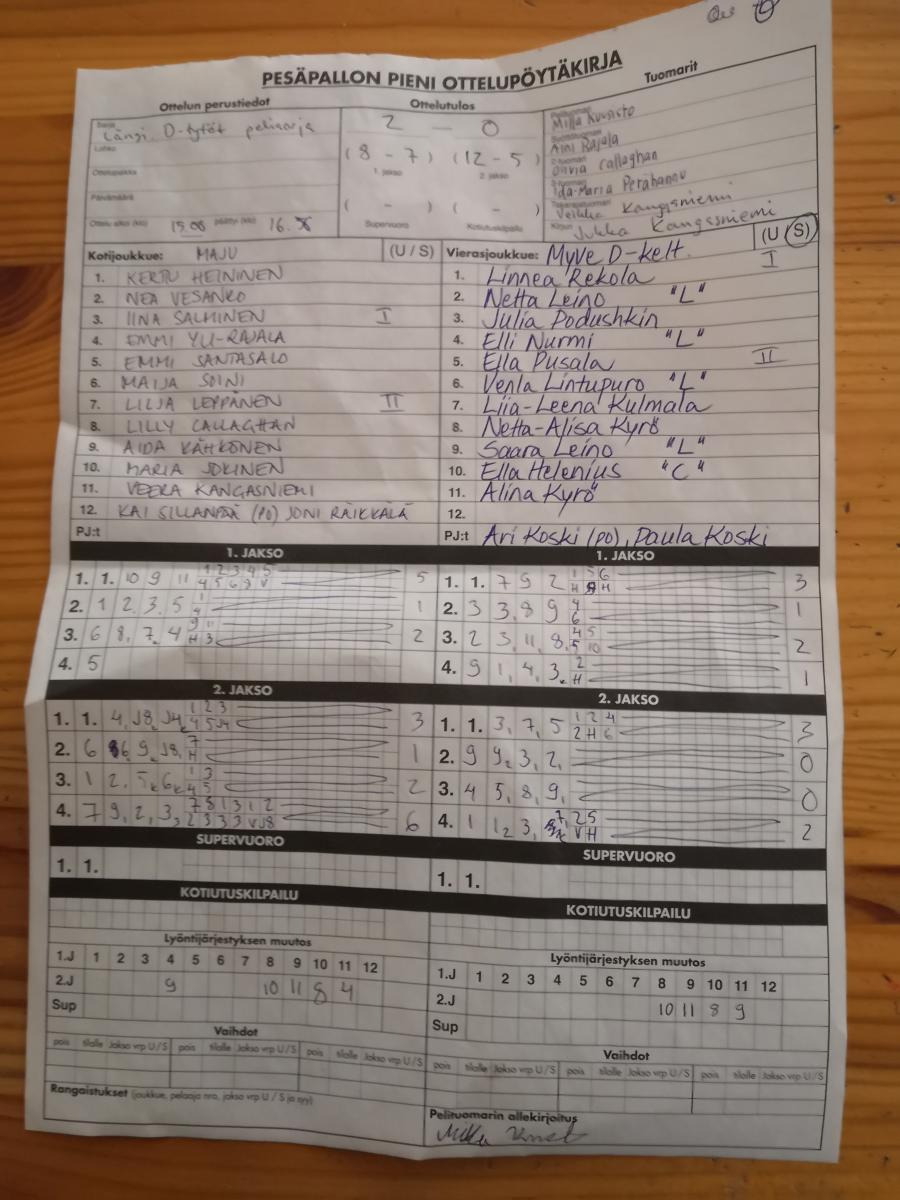 PESÄPALLON PIENI OTTELUPÖYTÄKIRJA
Ottelun perustiedot
Ottelutulos
Tuomarit
Länsi D-tytöt pelisarja
Lohko
Ottelupaikka
Päivämäärä
Ottelu alkoi (klo) 15.08 päättyi (klo) 16.
2 - 0
(8 - 7) (12 - 5)
1. jakso 2. jakso
( - ) ( - )
Supervuoro Kotiutuskilpailu
Milla Kuusisto
Aini Rajala
Olivia Callaghan
Ida-Maria Perähannu
Veikka Kangasniemi
Jukka Kangasniemi
Kotijoukkue: MAJU (U / S)
1. KERTU HEININEN
2. NEA VESANKO
3. IINA SALMINEN I
4. EMMI YLI-RAJALA
5. EMMI SANTASALO
6. MAIJA SOINI
7. LILJA LEPPÄNEN II
8. LILLY CALLAGHAN
9. AIDA KÄHKÖNEN
10. MARIA JOKINEN
11. VEERA KANGASNIEMI
12. KAI SILLANPÄÄ (PO) JONI RÄIKKÄLÄ
PJ:t
Vierasjoukkue: MyVe D-kelt. (U / S)
1. Linnea Rekola I
2. Netta Leino "L"
3. Julia Podushkin
4. Elli Nurmi "L"
5. Ella Pusala II
6. Venla Lintupuro "L"
7. Liia-Leena Kulmala
8. Netta-Alisa Kyrö
9. Saara Leino "L"
10. Ella Helenius "C"
11. Alina Kyrö
12.
PJ:t Ari Koski (PO), Paula Koski
1. JAKSO
1. 1. 10 9 11 1 2 3 4 5 5
4 5 6 9 V
2. 1 2, 3, 5 1 1
4
3. 6 8, 7, 4 9 11 2
H 3
4. 5
1. JAKSO
1. 1. 7 9 2 1 5 6 3
H 8 H
2. 3 3, 8 9 4 1
6
3. 2 3, 11, 8, 4 5 2
5 10
4. 9 1, 4, 3, 2 1
H
2. JAKSO
1. 1. 4, J8, J4, 1 2 3 3
4 5 J4
2. 6 9, J8, 7 1
H
3. 1 2, 5K 6K 1 3 2
4 5
4. 7 9, 2, 3, 7 8 1 3 1 2 6
2 3 3 3 V J8
2. JAKSO
1. 1. 3, 7, 5 1 2 4 3
2 H 6
2. 9 9, 3, 2, 0
3. 4 5, 8, 9, 0
4. 1 1, 3, 7, 2 5 2
V H
SUPERVUORO
1. 1.
SUPERVUORO
1. 1.
KOTIUTUSKILPAILU
KOTIUTUSKILPAILU
Lyöntijärjestyksen muutos
1.J 1 2 3 4 5 6 7 8 9 10 11 12
2.J 9 10 11 8 4
Sup
Lyöntijärjestyksen muutos
1.J 1 2 3 4 5 6 7 8 9 10 11 12
2.J 10 11 8 9
Sup
Vaihdot
pois tilalle Jakso vrp U/S pois tilalle Jakso vrp U/S pois tilalle Jakso vrp U/S
Vaihdot
pois tilalle Jakso vrp U/S pois tilalle Jakso vrp U/S pois tilalle Jakso vrp U/S
Rangaistukset (joukkue, pelaaja nro, jakso vrp U / S ja syy)
Pelituomarin allekirjoitus